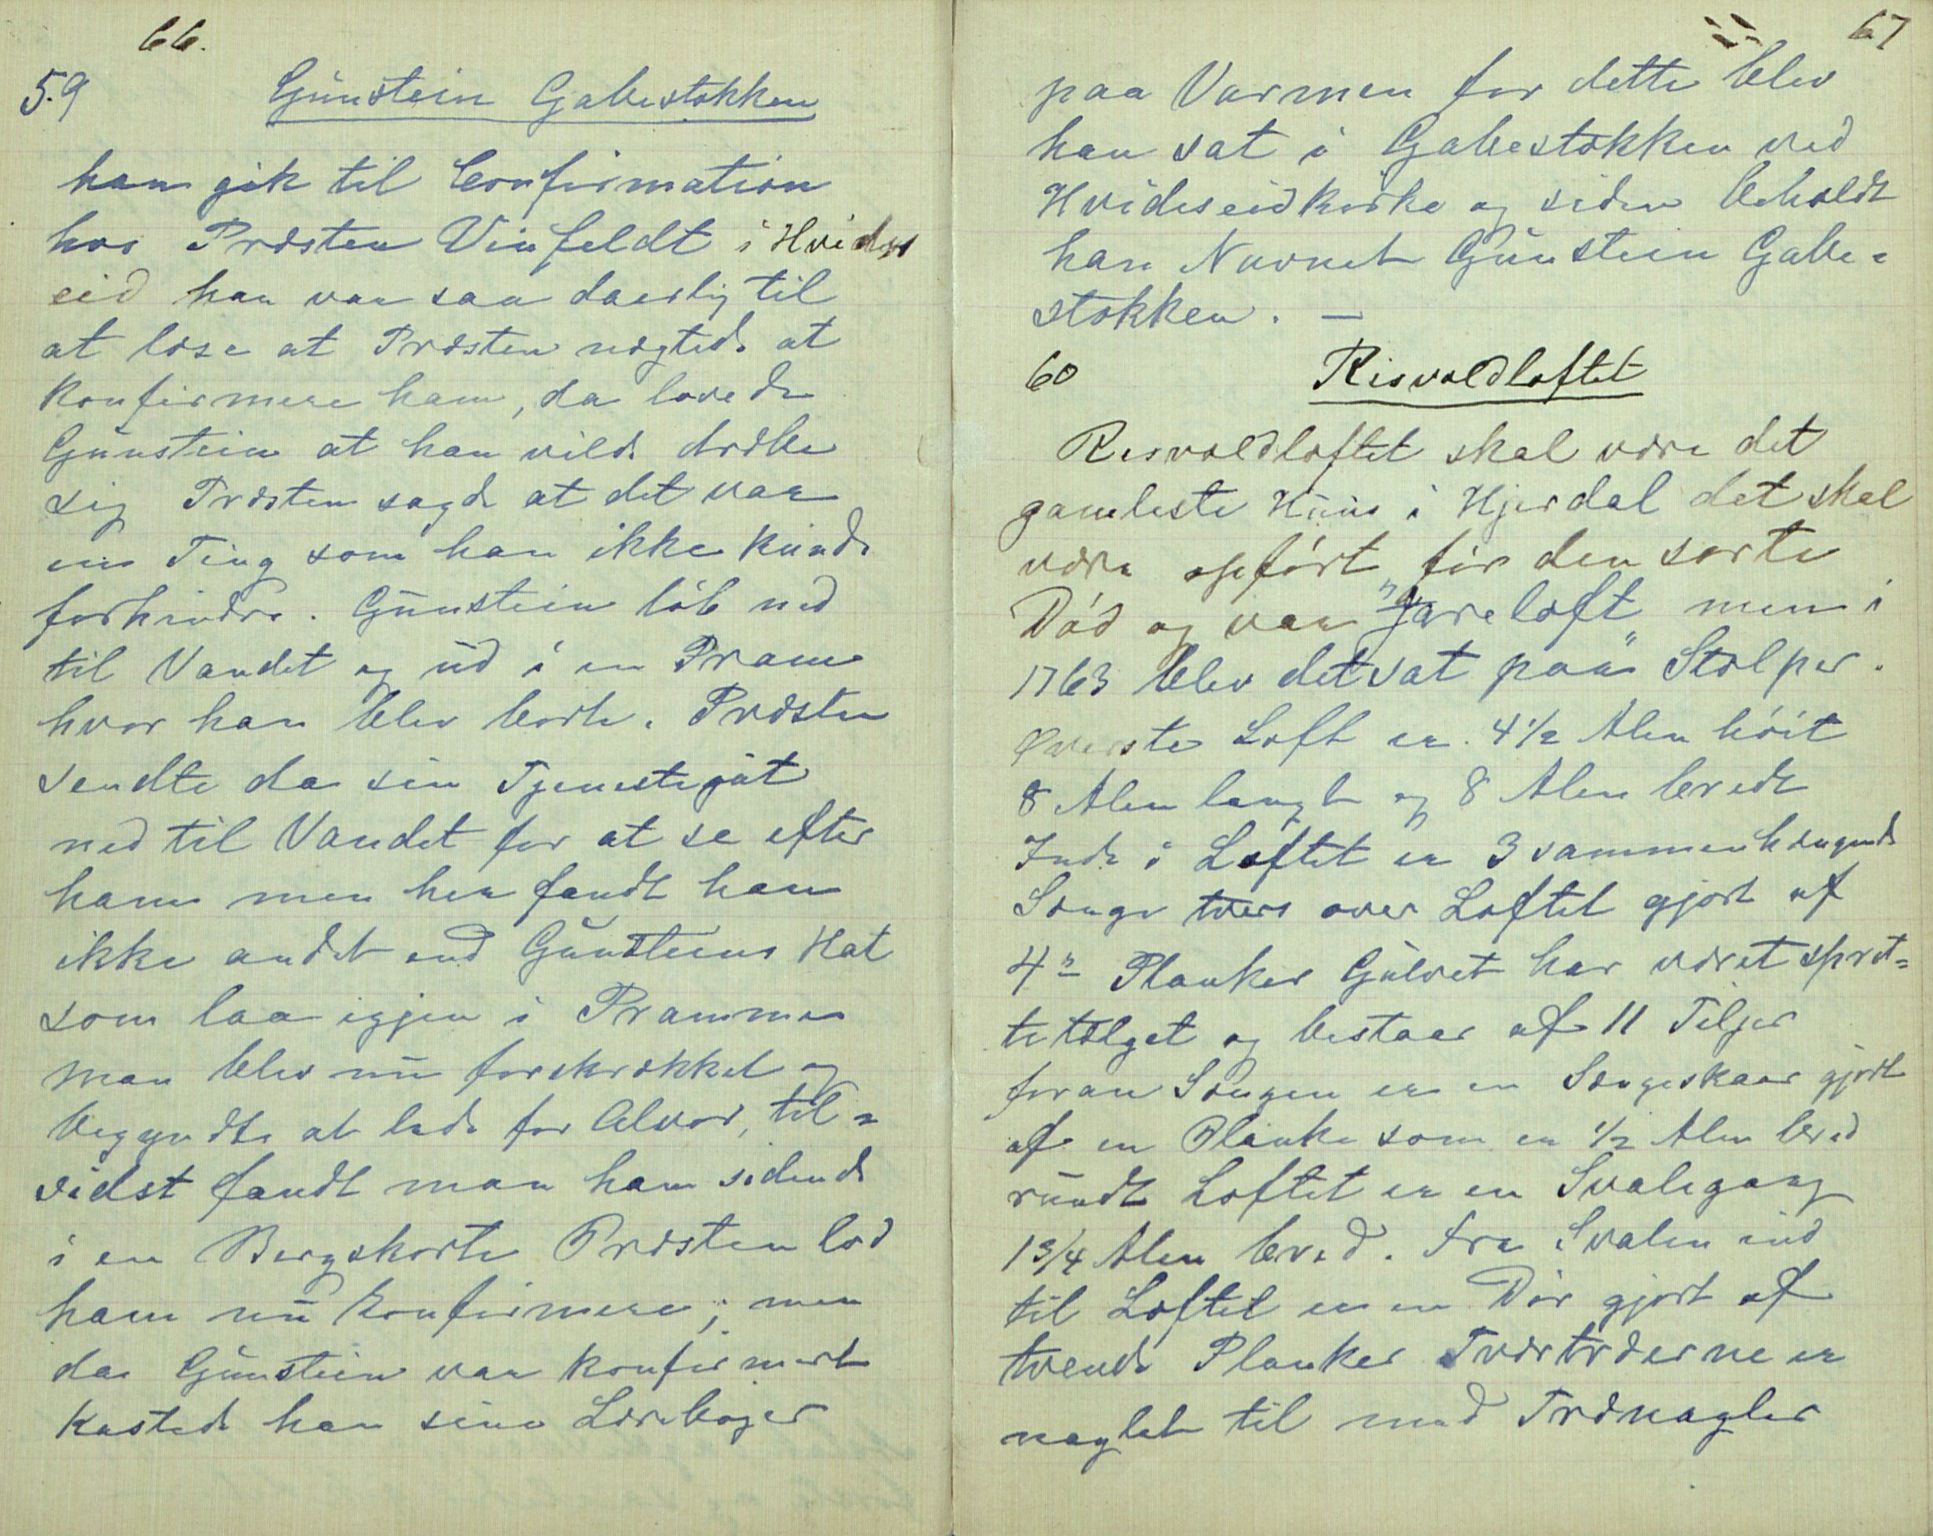 66.
59 Gunstein Gabestokken
han gik til Confirmation
hos Præsten Vinfeldt i Hvides
eid han var saa daarlig til
at læse at Præsten nægtede at
konfirmere ham, da lovede
Gunstein at han vilde dræbe
sig Præsten sagde at det var
en Ting som han ikke kunde
forhindre. Gunstein løb ned
til Vandet og ud i en Pram
hvor han blev borte. Præsten
sendte da sin Tjenestegut
ned til Vandet for at se efter
ham men her fandt han
ikke andet end Gunsteins Hat
som laa igjen i Prammen
man blev nu forskrækket og
begyndte at lede for Alvor, til=
sidst fandt man ham sidende
i en Bergskorte Præsten lod
ham nu konfirmere; men
da Gunstein var konfirmert
kastede han sine Lærebøger
67
paa Varmen for dette blev
han sat i Gabestokken ved
Hvideseid kirke og siden beholdt
han Navnet Gunstein Gabe=
stokken. —
60 Risvoldloftet
Risvoldloftet skal være det
gamleste Huus i Hjerdal det skal
være opført før den sorte
Død og var "Jareloft" men i
1763 blev det sat paa Stolper.
Øverste Loft er 4 1/2 Alen høit
8 Alen langt og 8 Alen bredt
Inde i Loftet er 3 sammenhængende
Senge tvers over Loftet gjort af
4" Planker Gulvet har været spret=
tetølget og bestaar af 11 Tiljer
foran Sengen er en Sengeskaar gjort
af en Planke som er 1/2 Alen bred
rundt Loftet er en Svalegang
1 3/4 Alen bred. Fra Svalen ind
til Loftet er en Dør gjort af
tvende Planker Tværtræerne er
naglet til med Trænagler